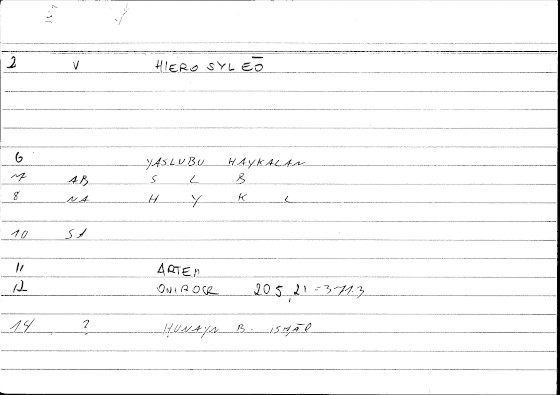 2 V HIEROSYLEŌ
6 YASLUBU HAYKALAN
7 AB S L B
8 NA H Y K L
10 SA
11 ARTEM
12 ONIROCR 205,21 = 371.3
14 ? HUNAYN B. ISHĀQ